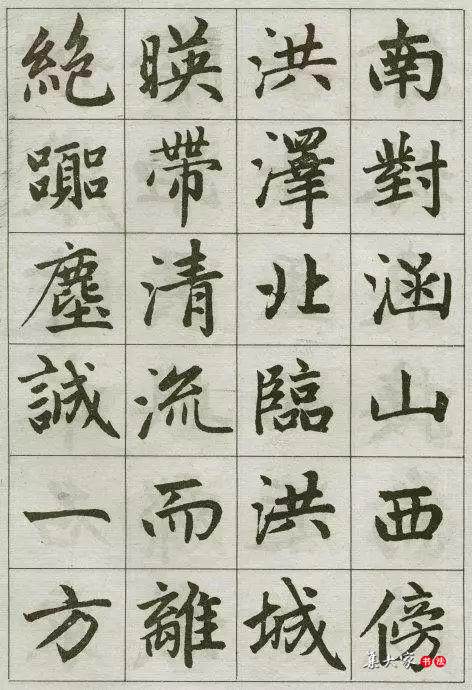 南對涵山西傍
洪澤北臨洪城
暎帶清流而離
絕囂塵誠一方
集大家书法